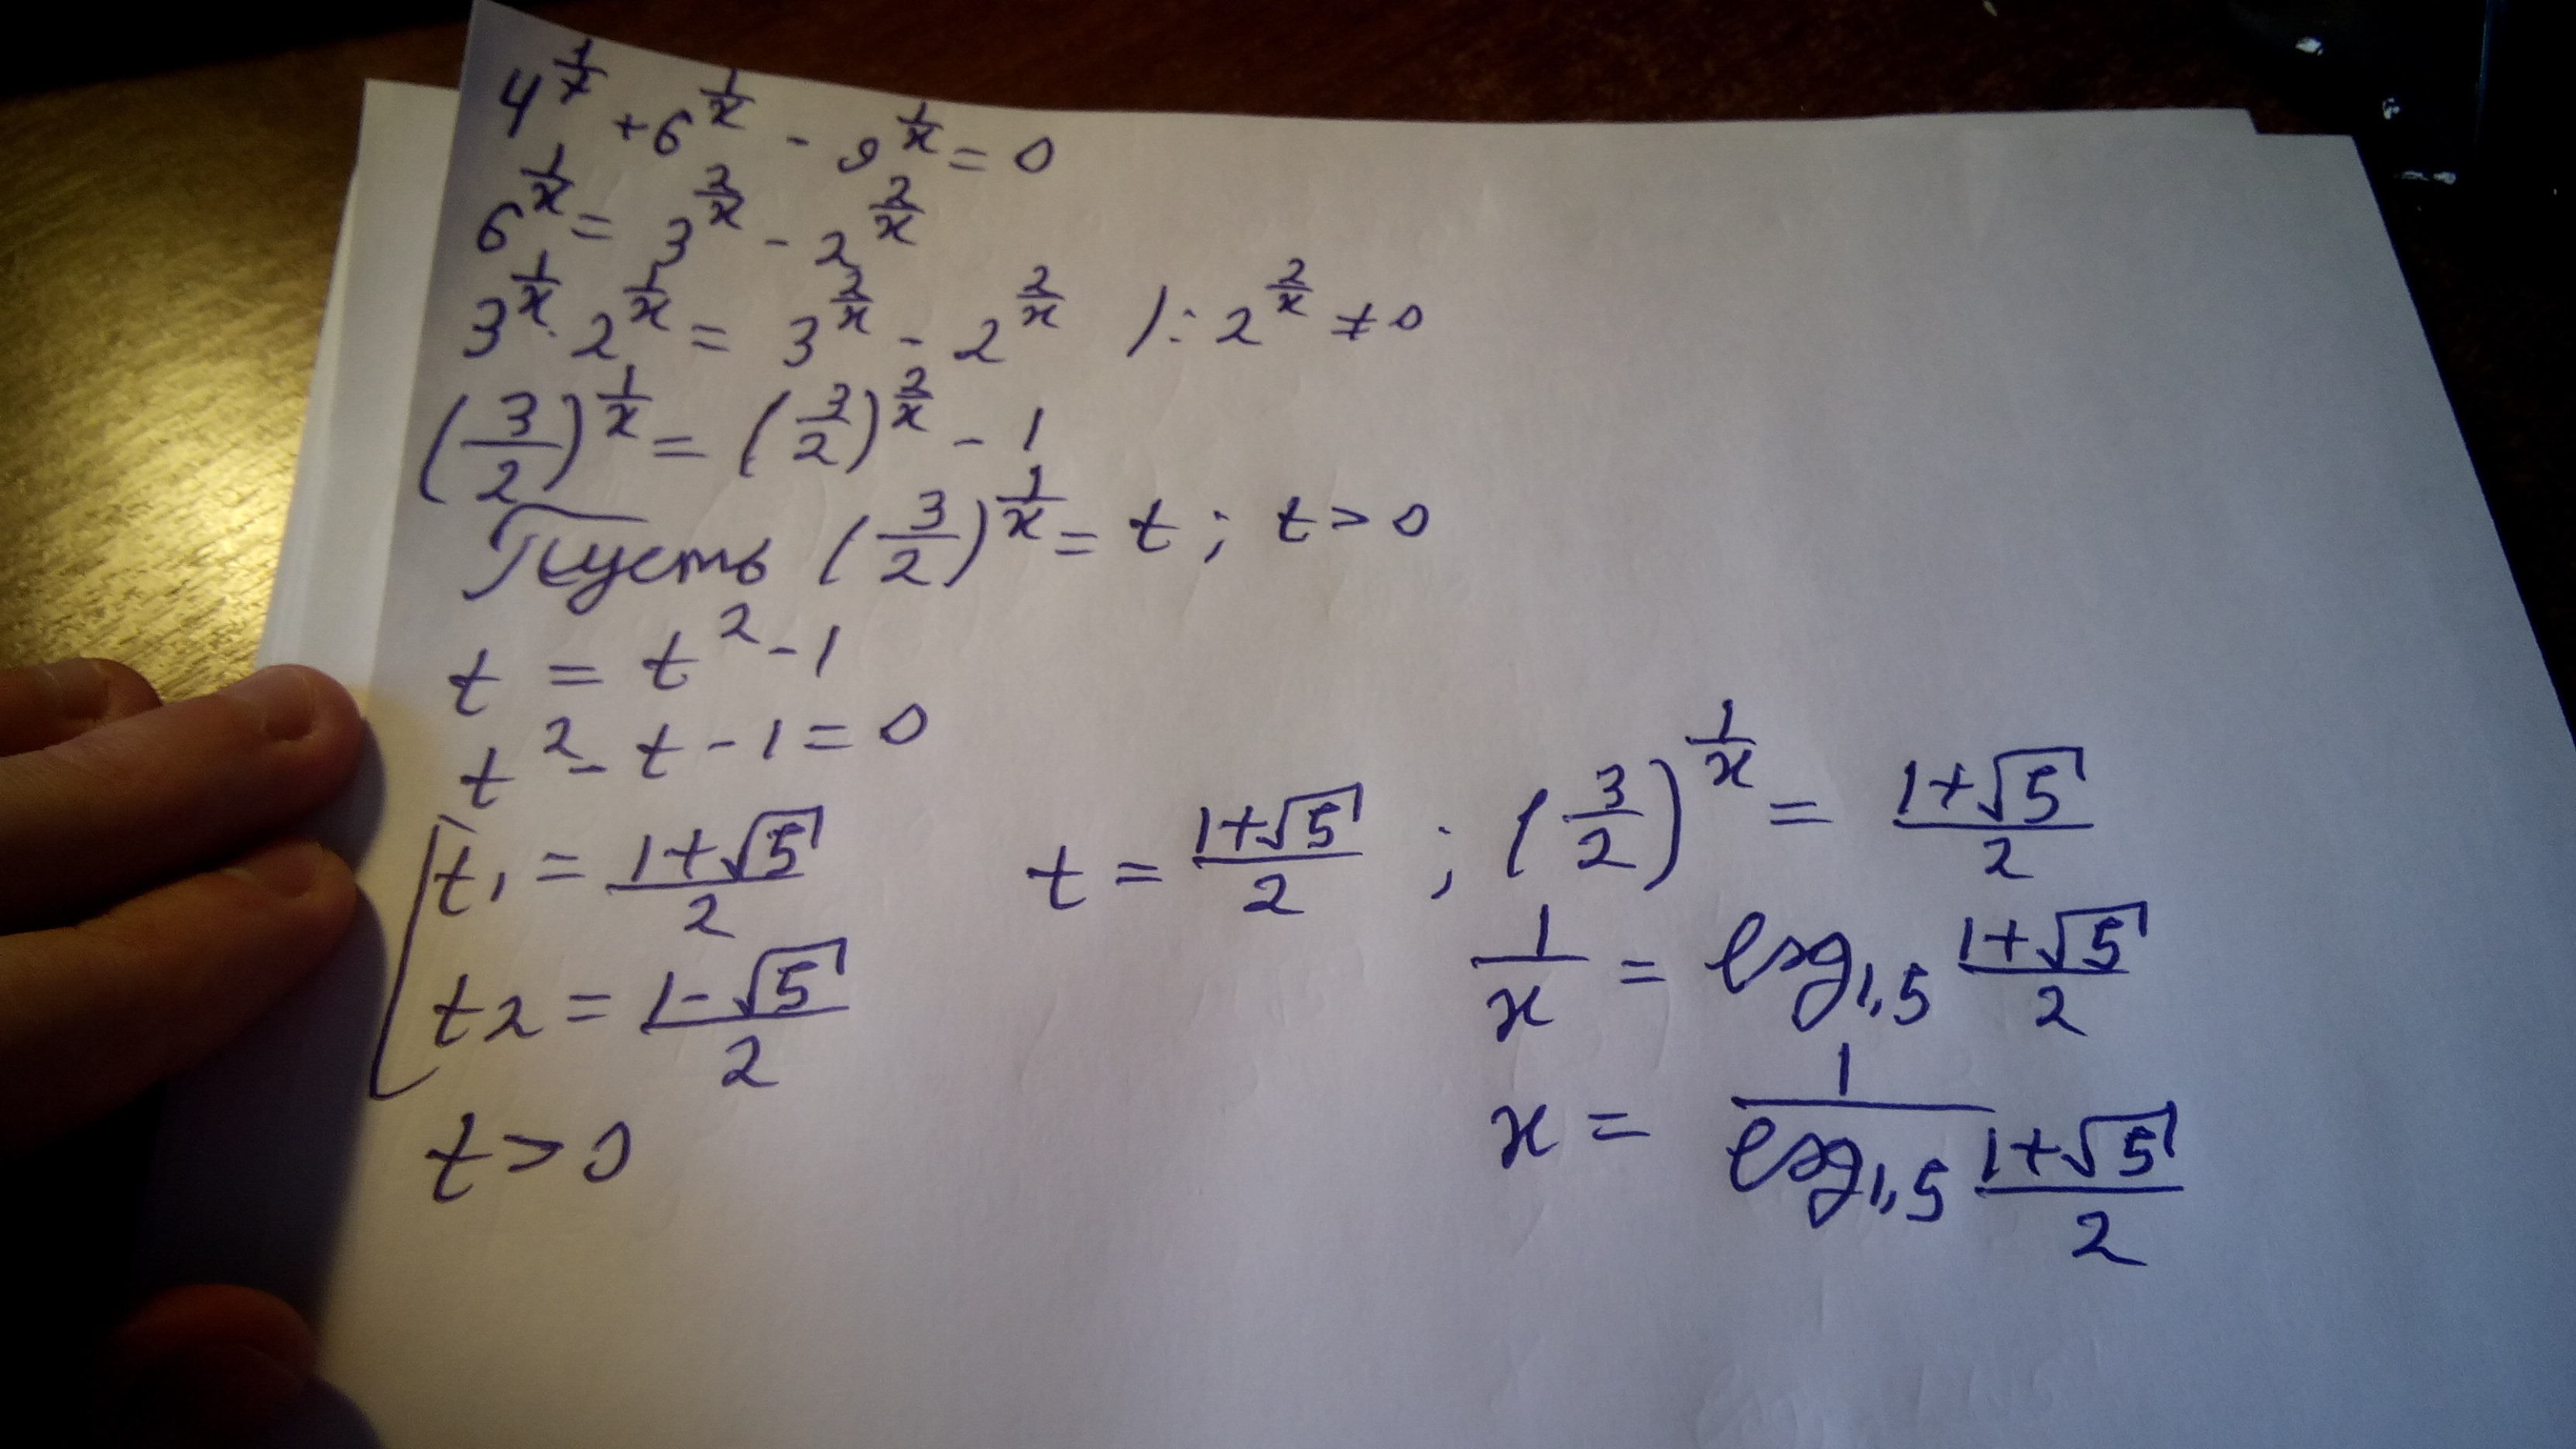 4^(1/x) + 6^(1/x) - 9^(1/x) = 0
6^(1/x) = 3^(2/x) - 2^(2/x)
3^(1/x) · 2^(1/x) = 3^(2/x) - 2^(2/x) /: 2^(2/x) ≠ 0
(3/2)^(1/x) = (3/2)^(2/x) - 1
Пусть (3/2)^(1/x) = t ; t > 0
t = t² - 1
t² - t - 1 = 0
[t₁ = (1+√5)/2
t₂ = (1-√5)/2
t > 0
t = (1+√5)/2 ; (3/2)^(1/x) = (1+√5)/2
1/x = log₁,₅ (1+√5)/2
x = 1/(log₁,₅ (1+√5)/2)